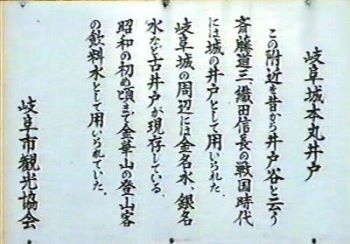 岐阜城本丸井戸
この附近を昔から井戸谷と云う
斉藤道三、織田信長の戦国時代
には城の井戸として用いられた
岐阜城の周辺には金名水、銀名
水など古井戸が現存している。
昭和の初め頃まで金華山の登山客
の飲料水として用いられていた。
岐阜市観光協会